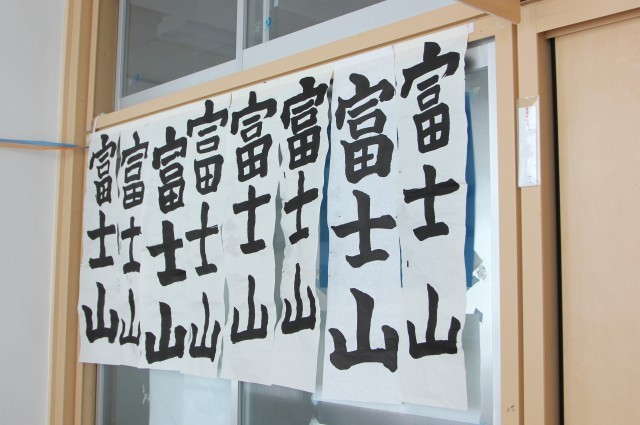 富士山
富士山
富士山
富士山
富士山
富士山
富士山
富士山